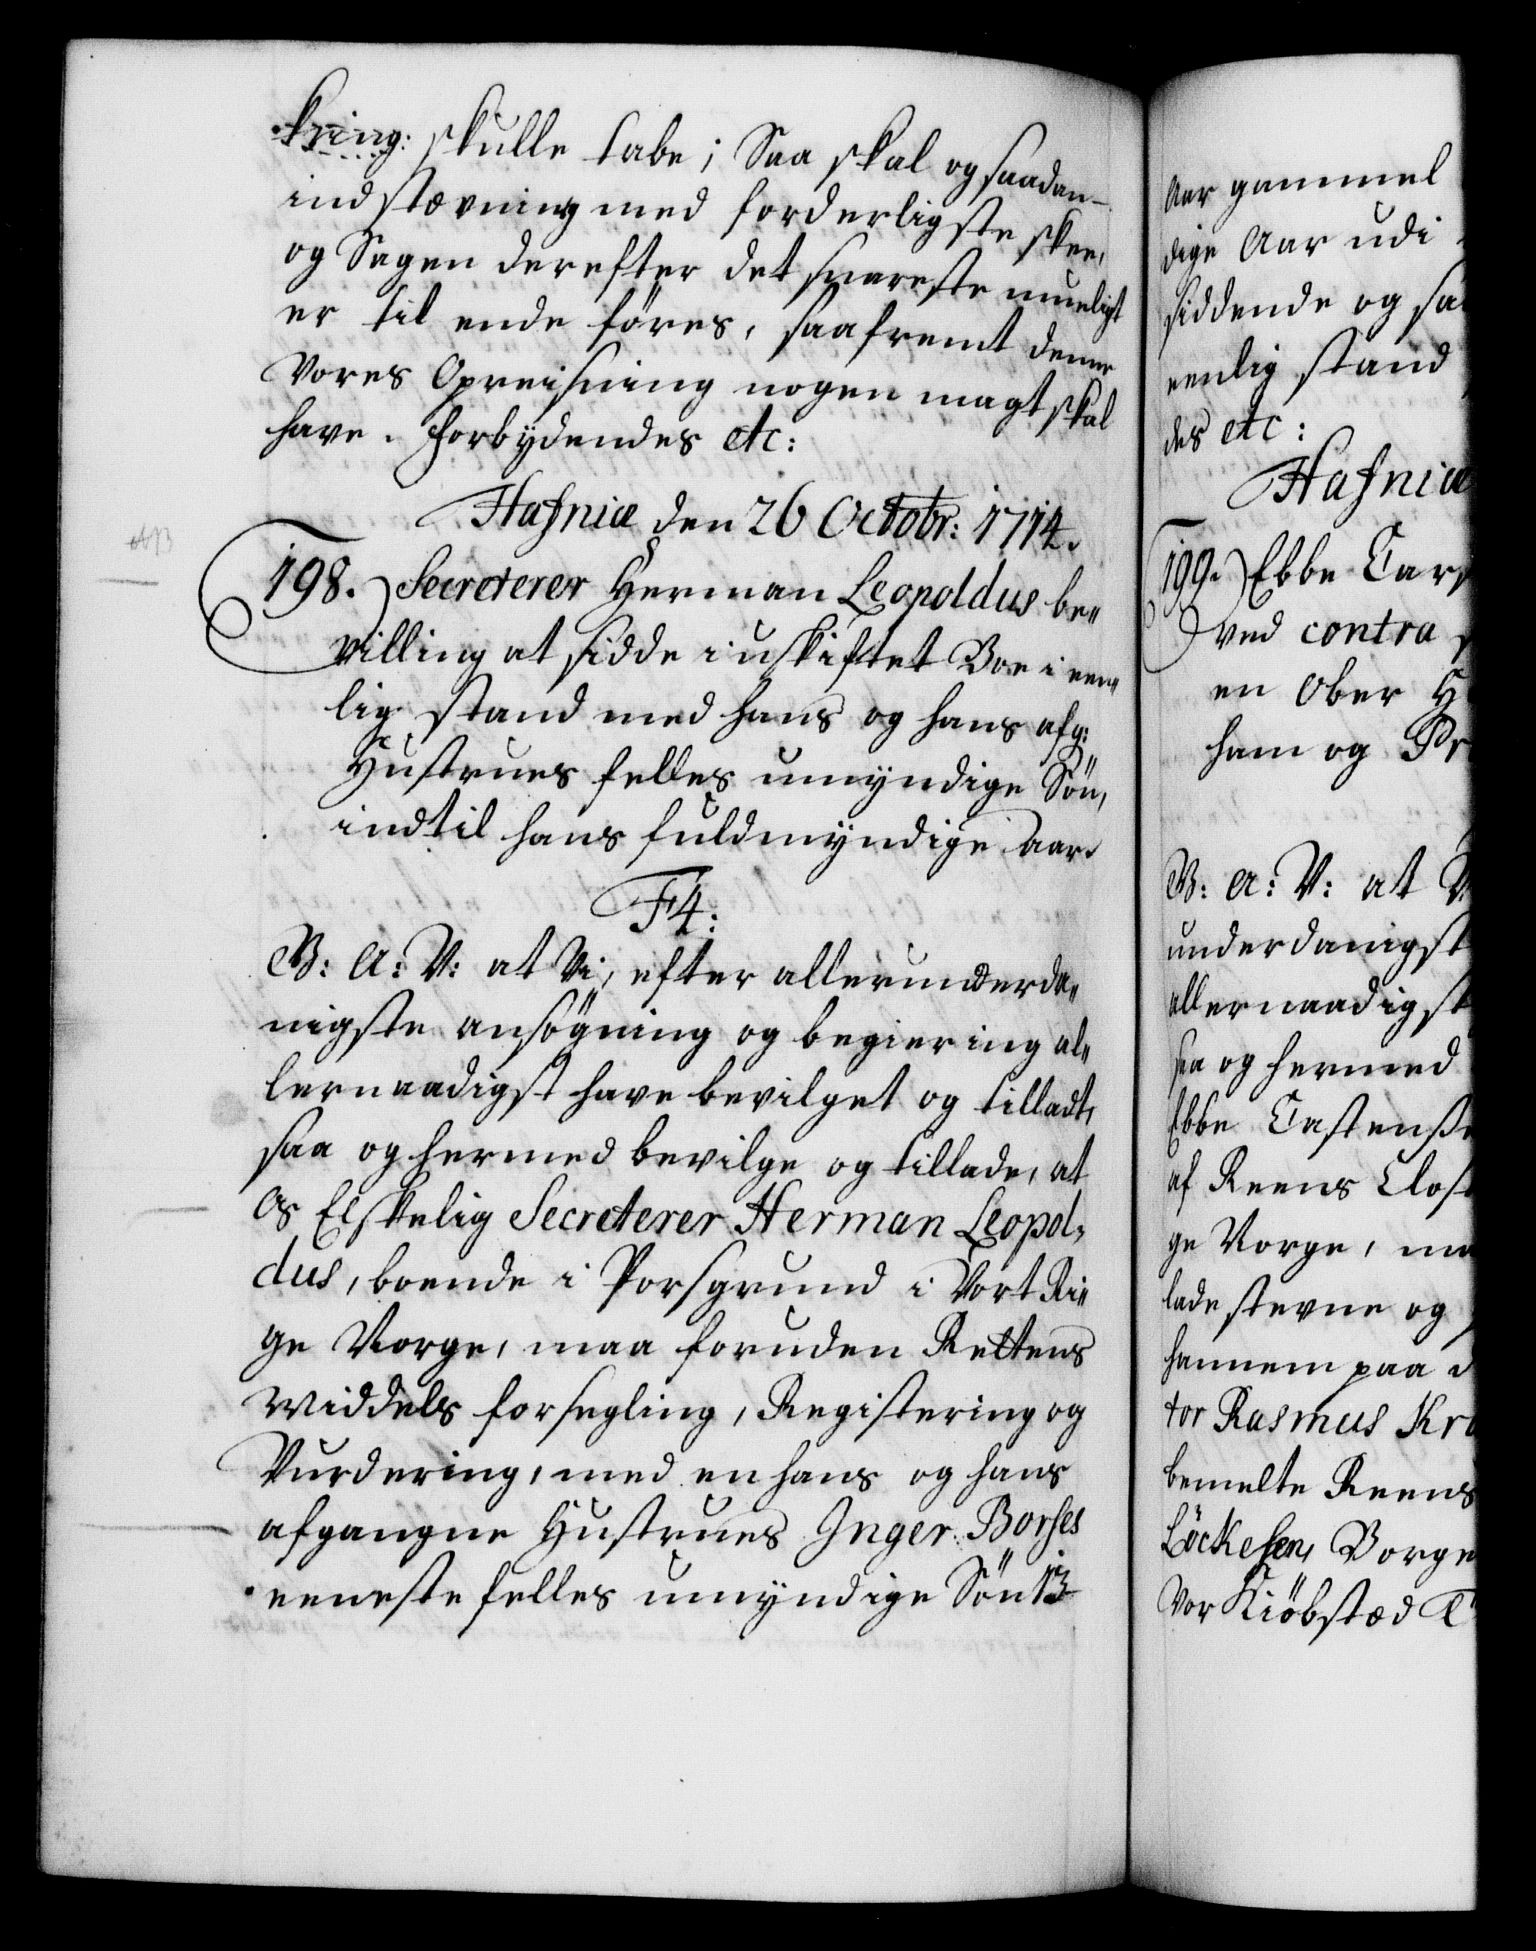 kring: skulle tabe; Saa skal og saadan
indstævning med forderligste skee,
og Sagen derefter det snareste mueligt
er til ende føres, saafremt denne
Vores Opreisning nogen magt skal
have. Forbydendes etc:
Hafniæ den 26 Octobr: 1714.
198. Secreterer Herman Leopoldus be„
villing at sidde i uskiftet Boe i een„
lig stand med hans og hans afg:
Hustrues felles umyndige Søn,
indtil hans fuldmyndige aar.
F4:
V: A: V: at Vi, efter allerunderda„
nigste ansøgning og begiering al„
lernaadigst have bevilget og tilladt,
saa og hermed bevilge og tillade, at
Os Elskelig Secreterer Herman Leopol„
dus, boende i Porsgrund i Vort Ri„
ge Norge, maa foruden Rettens
Middels forsegling, Registering og
Vurdering, med en hans og hans
afgangne Hustrues Inger Borses
eeneste felles umyndige Søn 13
Aar gammel
dige Aar udi
siddende og
eenlig stand
des etc:
Hafniæ
199. Ebbe
ved contra
en Ober
ham og
V: A: V: at
underdanigst
allernaadigst
saa og hermed
Ebbe
af Reens Clost
ge Norge, ma
lade stevne og
hannem paa
tor Rasmus Kr
bemelte Reens
Vor Kiøbstæd